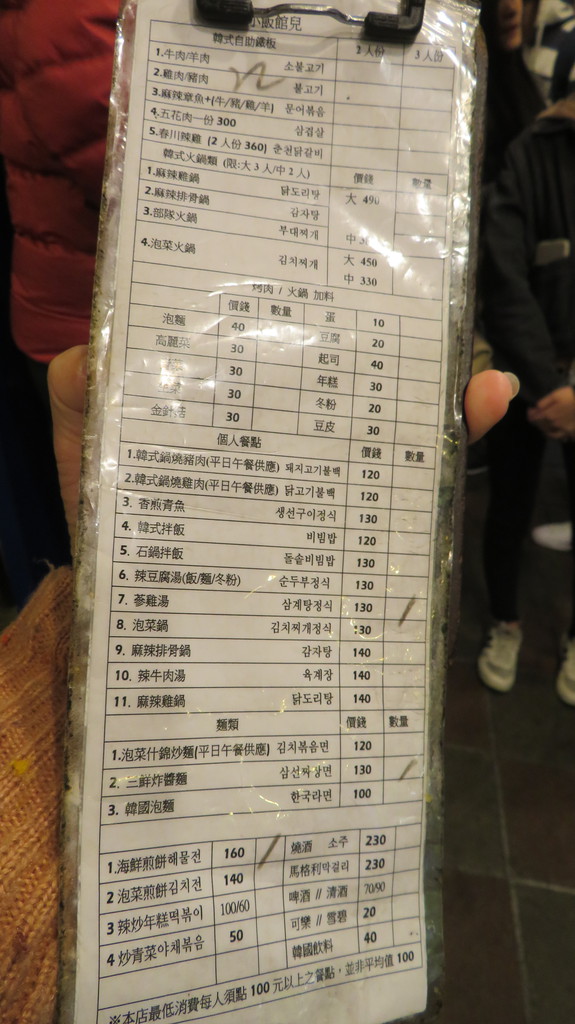 小飯館兒
韓式自助鐵板 2人份 3人份
1.牛肉/羊肉 소불고기
2.雞肉/豬肉 불고기
3.麻辣章魚+(牛/豬/雞/羊) 문어볶음
4.五花肉一份 300 삼겹살
5.春川辣雞 (2人份 360) 춘천닭갈비
韓式火鍋類 (限:大3人/中2人) 價錢 數量
1.麻辣雞鍋 닭도리탕 大 490
2.麻辣排骨鍋 감자탕
3.部隊火鍋 부대찌개 中
4.泡菜火鍋 김치찌개 大 450
中 330
烤肉 / 火鍋 加料
價錢 數量 蛋 10
泡麵 40 豆腐 20
高麗菜 30 起司 40
30 年糕 30
30 冬粉 20
金針菇 30 豆皮 30
個人餐點 價錢 數量
1.韓式鍋燒豬肉(平日午餐供應) 돼지고기불백 120
2.韓式鍋燒雞肉(平日午餐供應) 닭고기불백 120
3. 香煎青魚 생선구이정식 130
4. 韓式拌飯 비빔밥 120
5. 石鍋拌飯 돌솥비빔밥 130
6. 辣豆腐湯(飯/麵/冬粉) 순두부정식 130
7. 蔘雞湯 삼계탕정식 130
8. 泡菜鍋 김치찌개정식 130
9. 麻辣排骨鍋 감자탕 140
10. 辣牛肉湯 육계장 140
11. 麻辣雞鍋 닭도리탕 140
麵類 價錢 數量
1.泡菜什錦炒麵(平日午餐供應) 김치볶음면 120
2. 三鮮炸醬麵 삼선짜장면 130
3. 韓國泡麵 한국라면 100
1 海鮮煎餅해물전 160 燒酒 소주 230
2 泡菜煎餅김치전 140 馬格利막걸리 230
3 辣炒年糕떡볶이 100/60 啤酒 // 清酒 70/90
4 炒青菜야채볶음 50 可樂 // 雪碧 20
韓國飲料 40
※本店最低消費每人須點 100 元以上之餐點，並非平均值 100